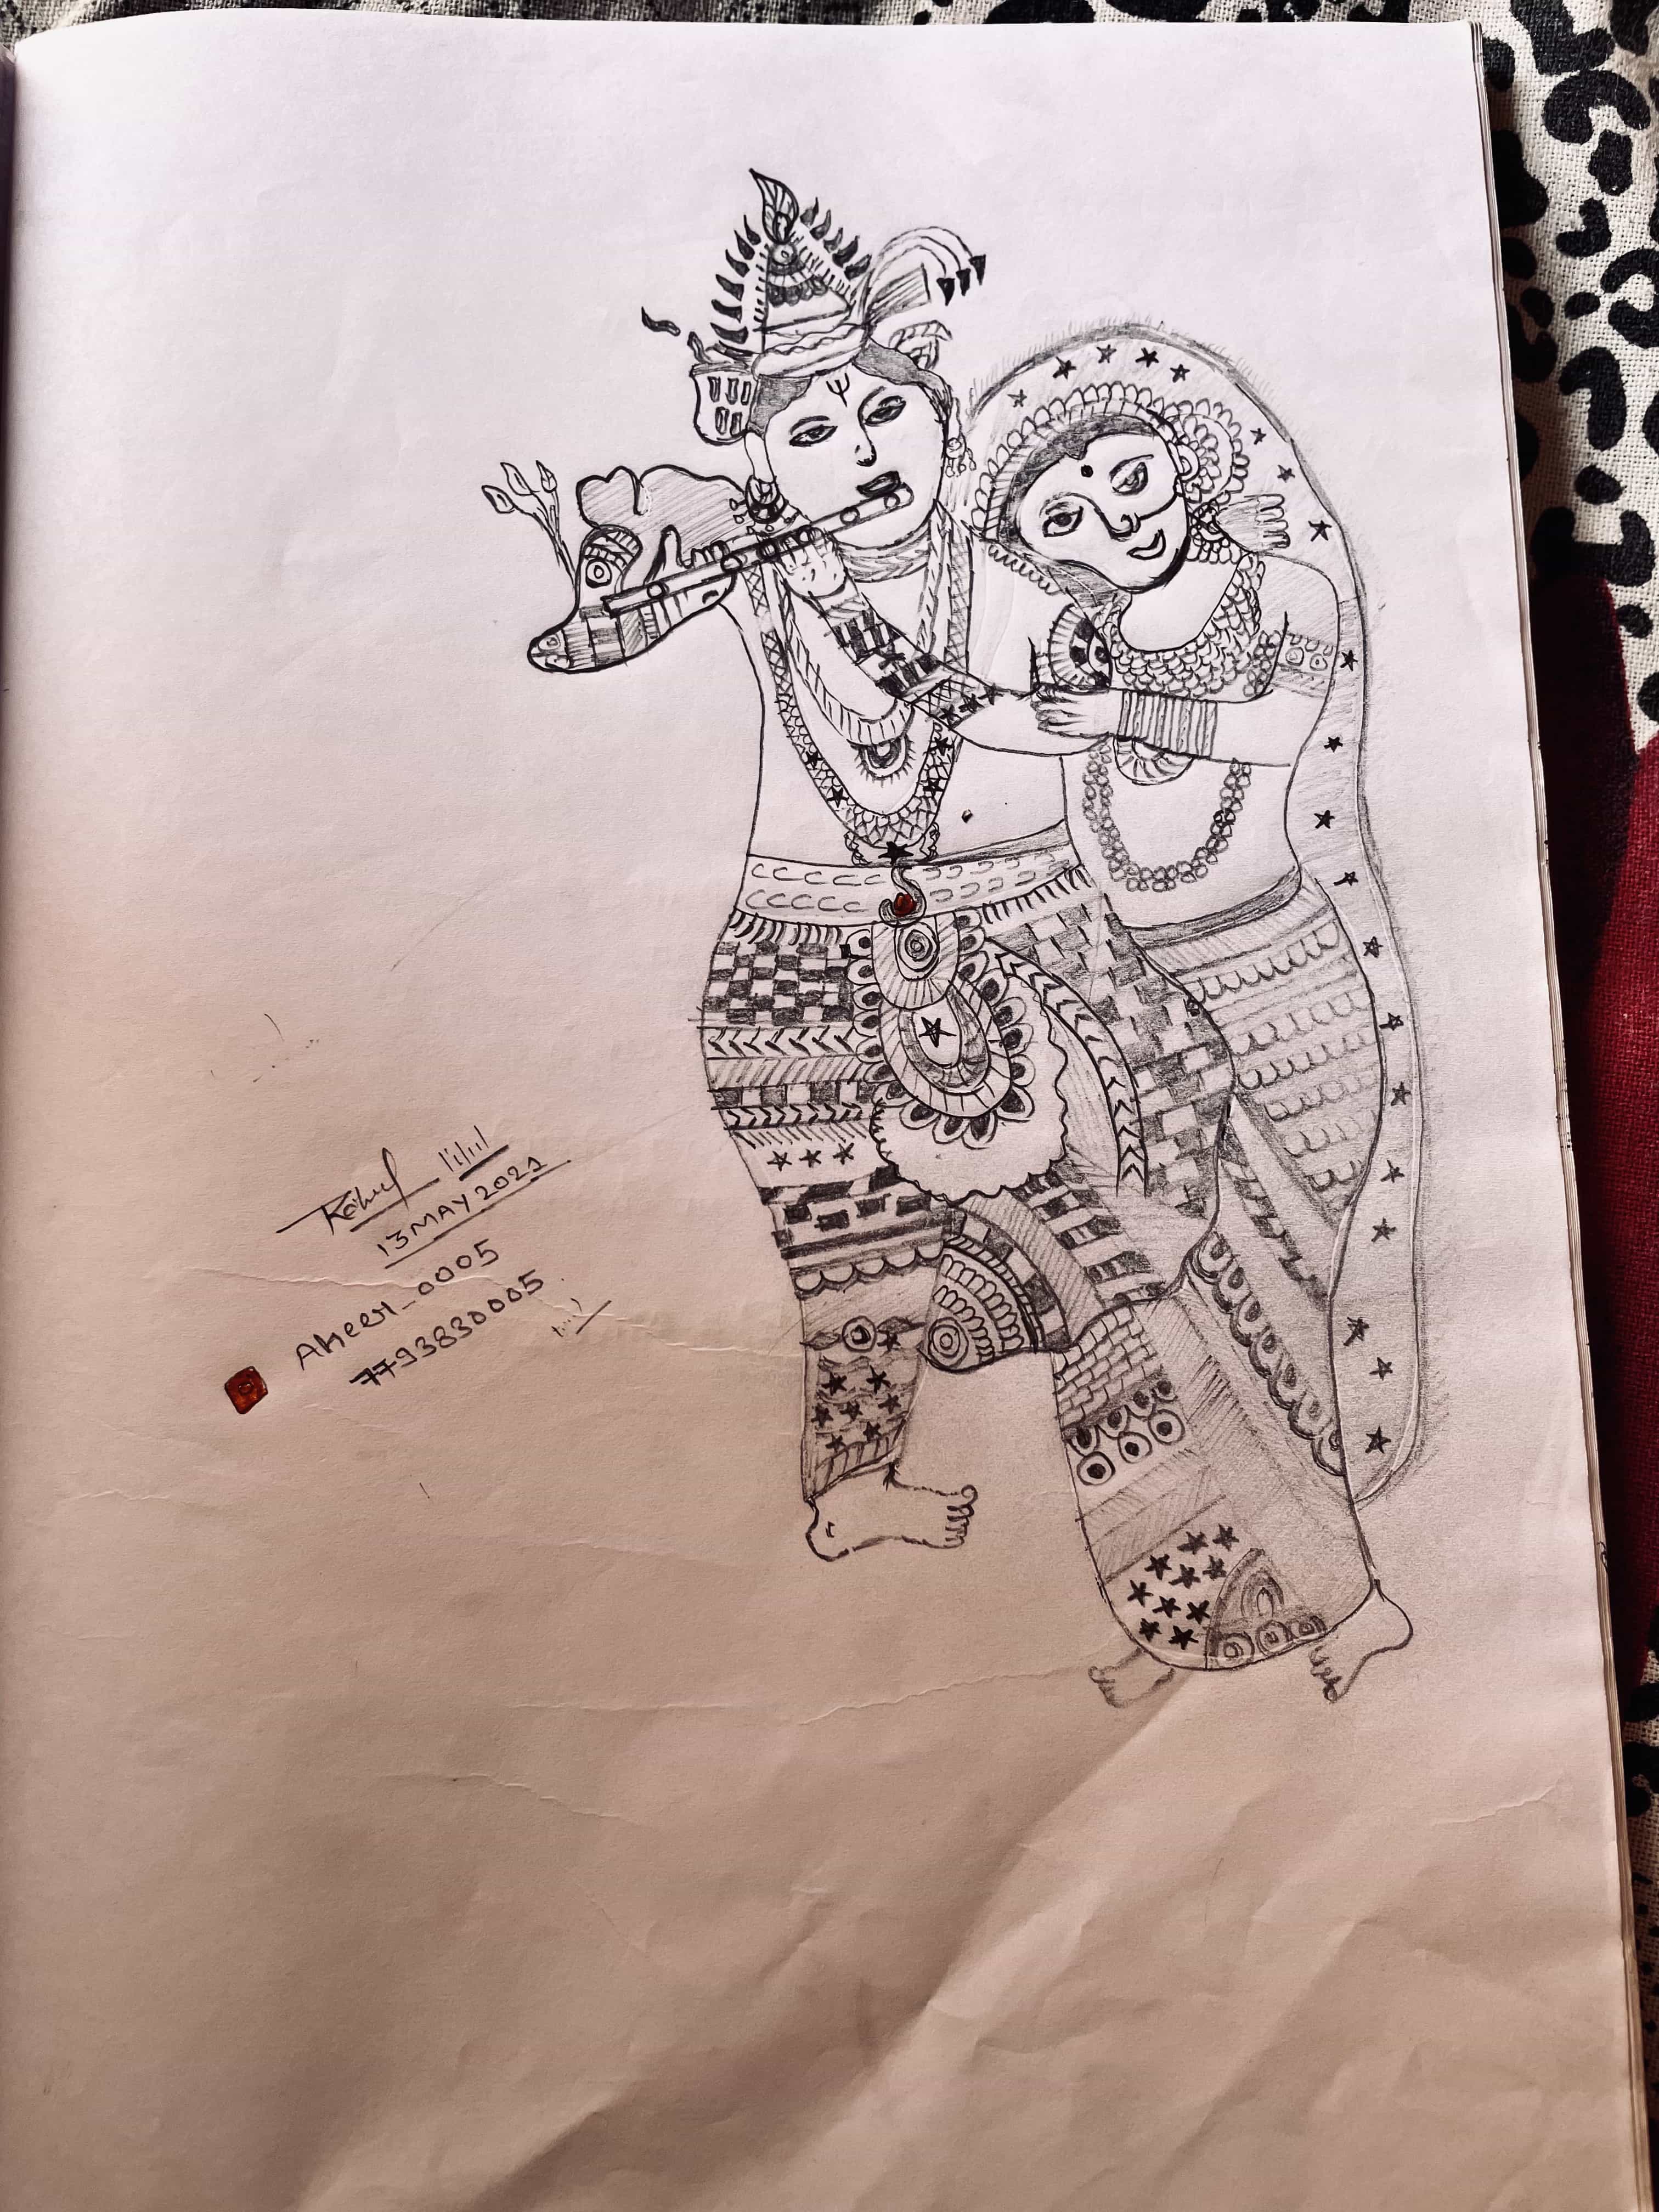 Rahul
13 MAY 2021
AKEER_0005
7793830005